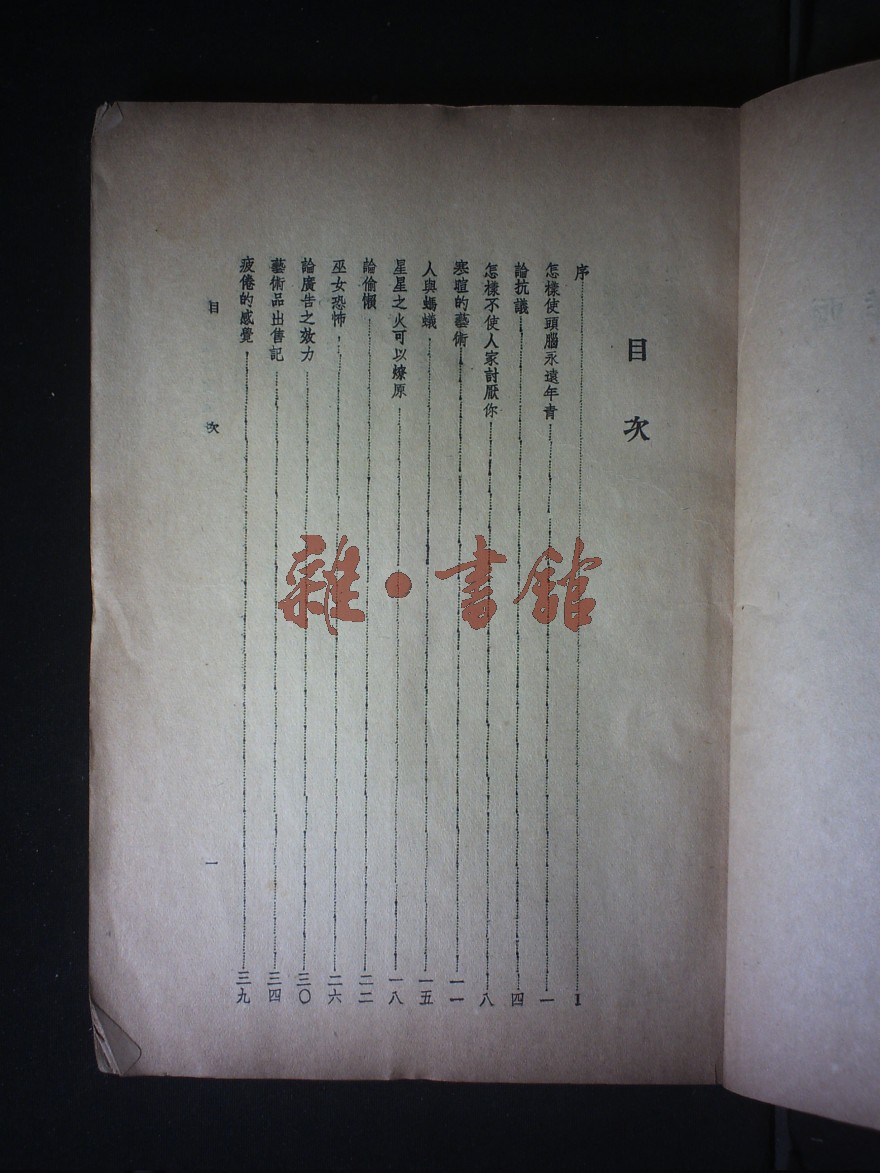 目次
序 I
怎樣使頭腦永遠年青 一
論抗議 四
怎樣不使人家討厭你 八
寒暄的藝術 一一
人與螞蟻 一五
星星之火可以燎原 一八
論偷懶 二二
巫女恐怖 二六
論廣告之效力 三〇
藝術品出售記 三四
疲倦的感覺 三九
目次 一
雜·書館